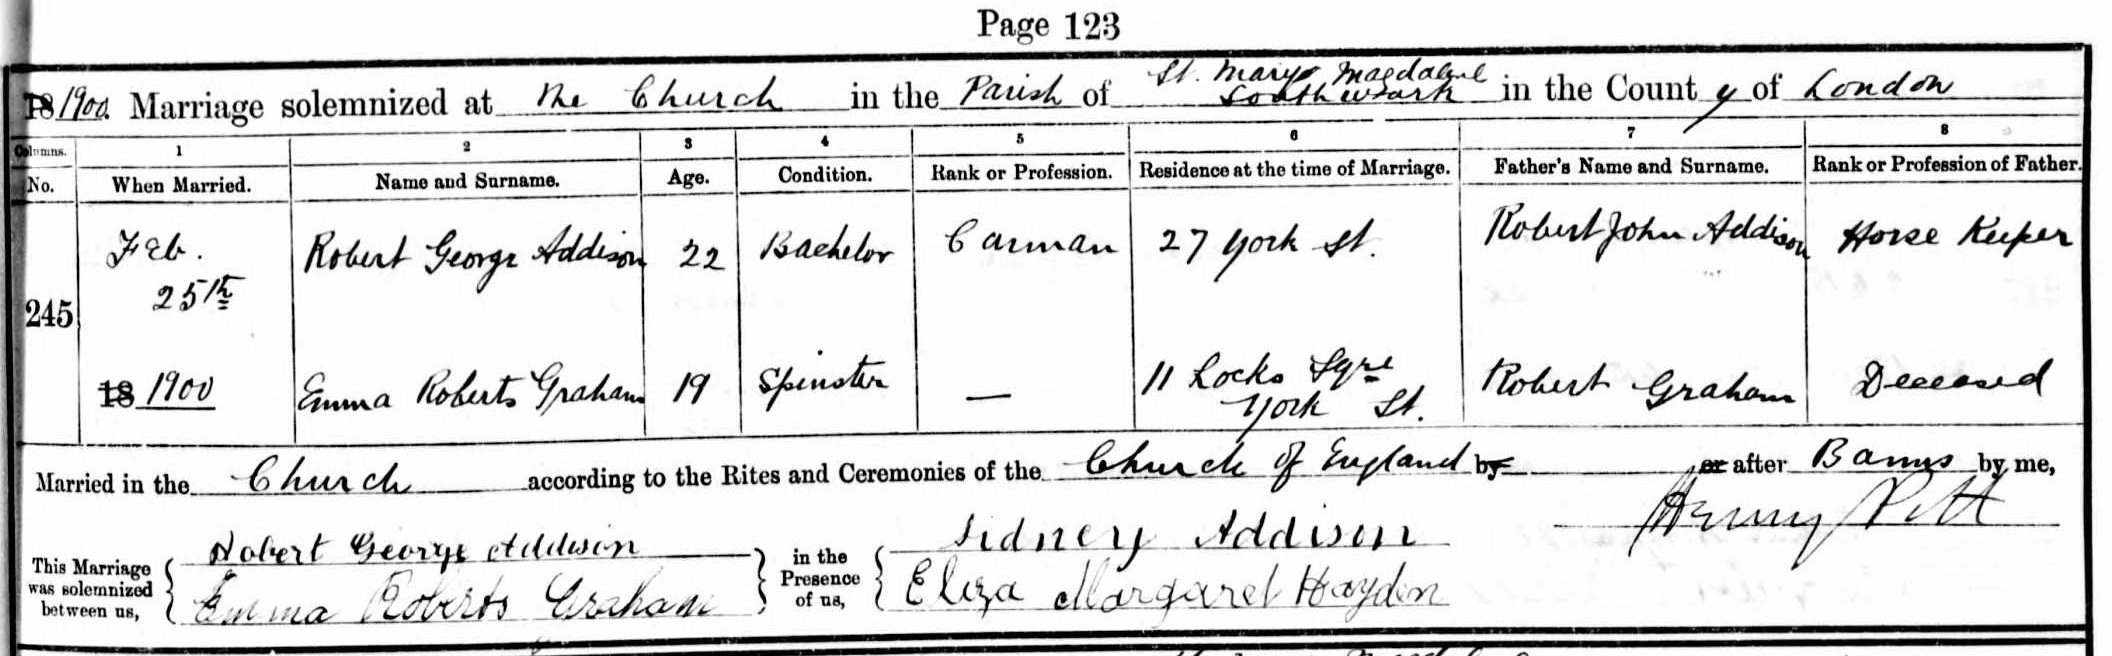 Page 123
18 1900. Marriage solemnized at the Church in the Parish of St. Mary Magdalene Southwark in the County of London
Columns. 1 2 3 4 5 6 7 8
No. When Married. Name and Surname. Age. Condition. Rank or Profession. Residence at the time of Marriage. Father's Name and Surname. Rank or Profession of Father.
245
Feb. 25th 18 1900
Robert George Addison 22 Bachelor Carman 27 York St. Robert John Addison Horse Keeper
Emma Roberts Graham 19 Spinster — 11 Locks Sqre York St. Robert Graham Deceased
Married in the Church according to the Rites and Ceremonies of the Church of England by or after Banns by me,
Henry Pitt
This Marriage was solemnized between us,
Robert George Addison
Emma Roberts Graham
in the Presence of us,
Sidney Addison
Eliza Margaret Hayden